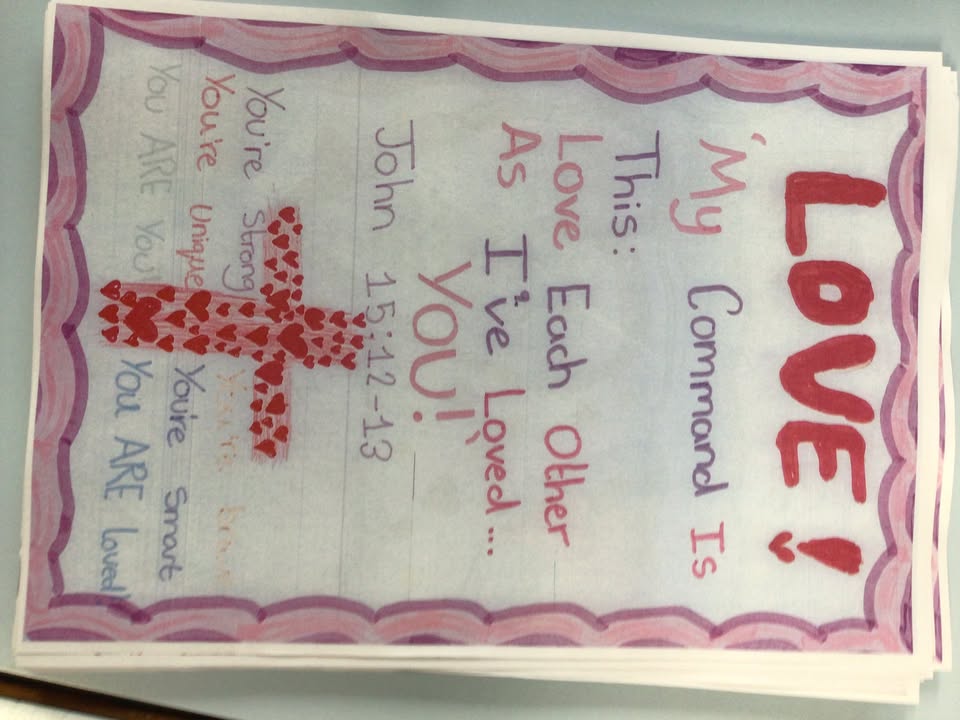 LOVE!
'My Command Is
This:
Love Each Other
As I've Loved...
YOU!'
John 15:12-13
You're Strong
You're Unique
You're Smart
You ARE You!
You ARE Loved!